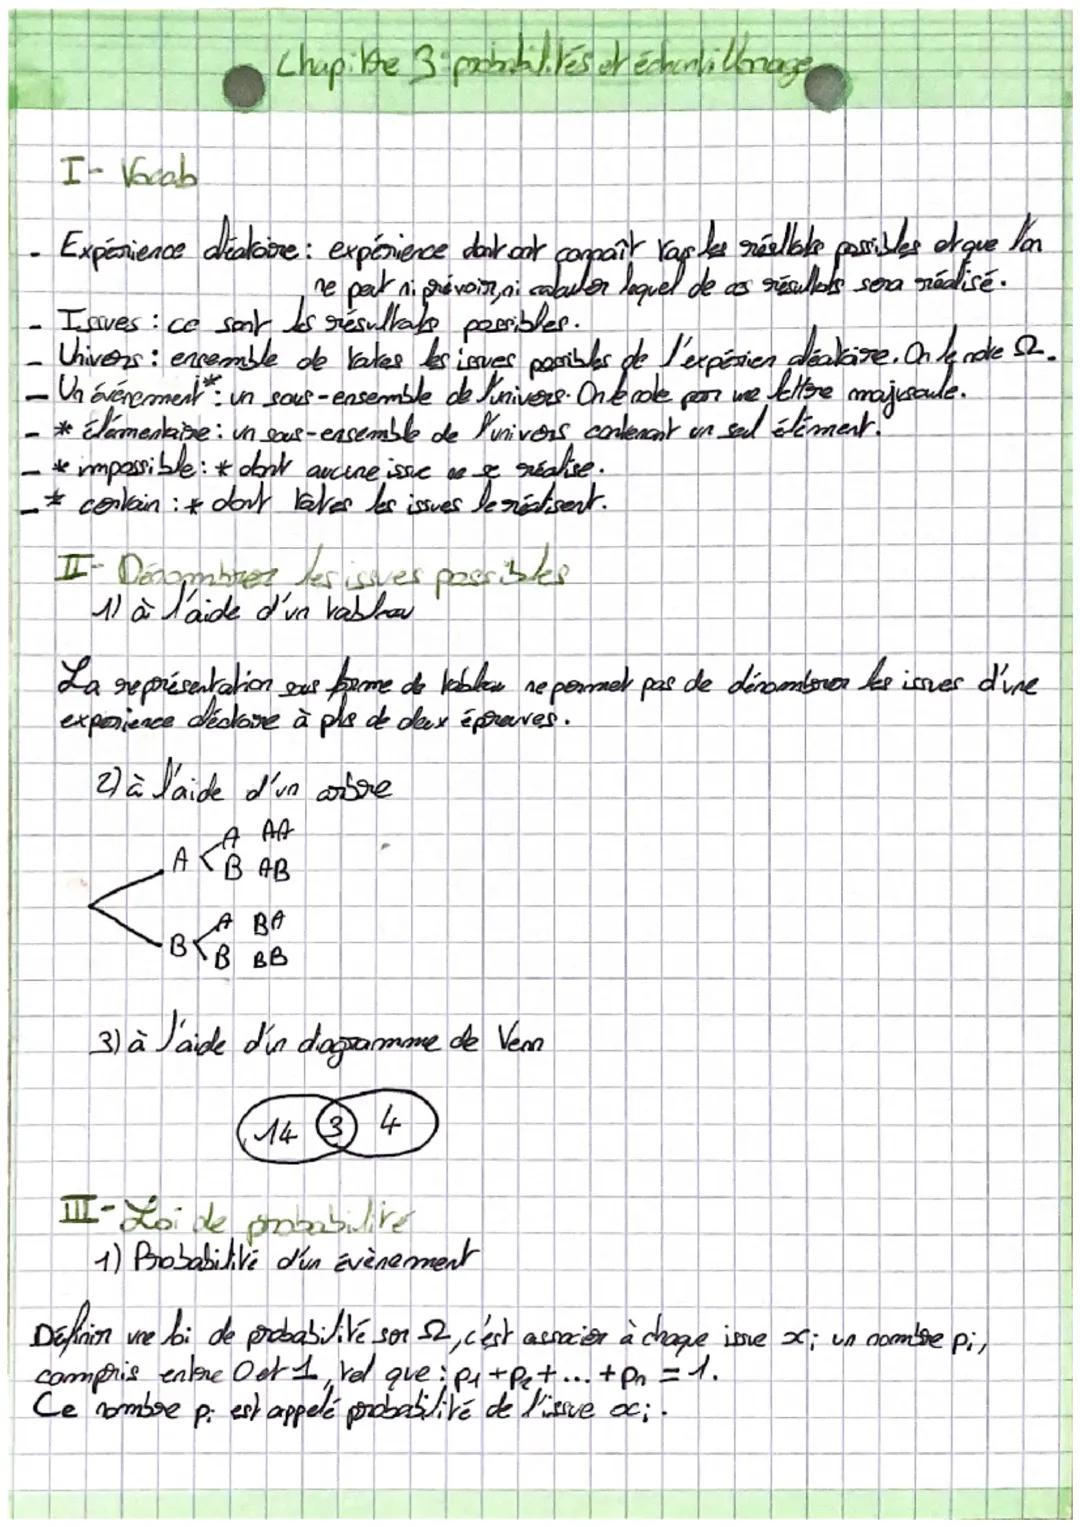 Chapitre 3 : probabilités et échantillonage
I - Vocab
- Expérience aléatoire : expérience dont ont connaît tous les résultats possibles et que l'on
ne peut ni prévoir, ni calculer lequel de ces résultats sera réalisé.
- Issues : ce sont les résultats possibles.
- Univers : ensemble de toutes les issues possibles de l'expérien aléatoire. On le note Ω.
- Un événement* : un sous-ensemble de l'univers. On le note par une lettre majuscule.
- * élémentaire : un sous-ensemble de l'univers contenant un seul élément.
- * impossible : * dont aucune issue ne se réalise.
- * certain : * dont toutes les issues se réalisent.
II - Dénombrer les issues possibles
1) à l'aide d'un tableau
La représentation sous forme de tableau ne permet pas de dénombrer les issues d'une
expérience aléatoire à plus de deux épreuves.
2) à l'aide d'un arbre
A AA
A
B AB
A BA
B
B BB
3) à l'aide d'un diagramme de Venn
14 3 4
III - Loi de probabilité
1) Probabilité d'un évènement
Définir une loi de probabilité sur Ω, c'est associer à chaque issue xi un nombre pi,
compris entre 0 et 1, tel que : p1 + p2 + ... + pn = 1.
Ce nombre pi est appelé probabilité de l'issue xi.